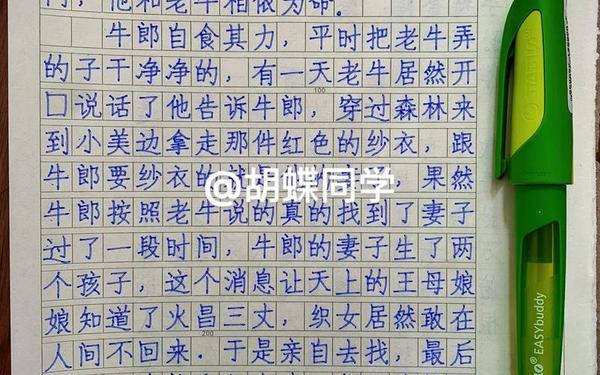 他和老牛相依为命。
牛郎自食其力，平时把老牛弄
的子干净净的，有一天老牛居然开
口说话了他告诉牛郎，穿过森林来
100
到小美边拿走那件红色的纱衣，跟
牛郎要纱衣的
，果然
@胡蝶同学
牛郎按照老牛说的真的找到了妻子
过了一段时间，牛郎的妻子生了两
个孩子，这个消息让天上的王母娘
娘知道了火昌三丈，织女居然敢在
200
人间不回来．于是亲自去找，最后
STABILO
STABILO EASYbuddy